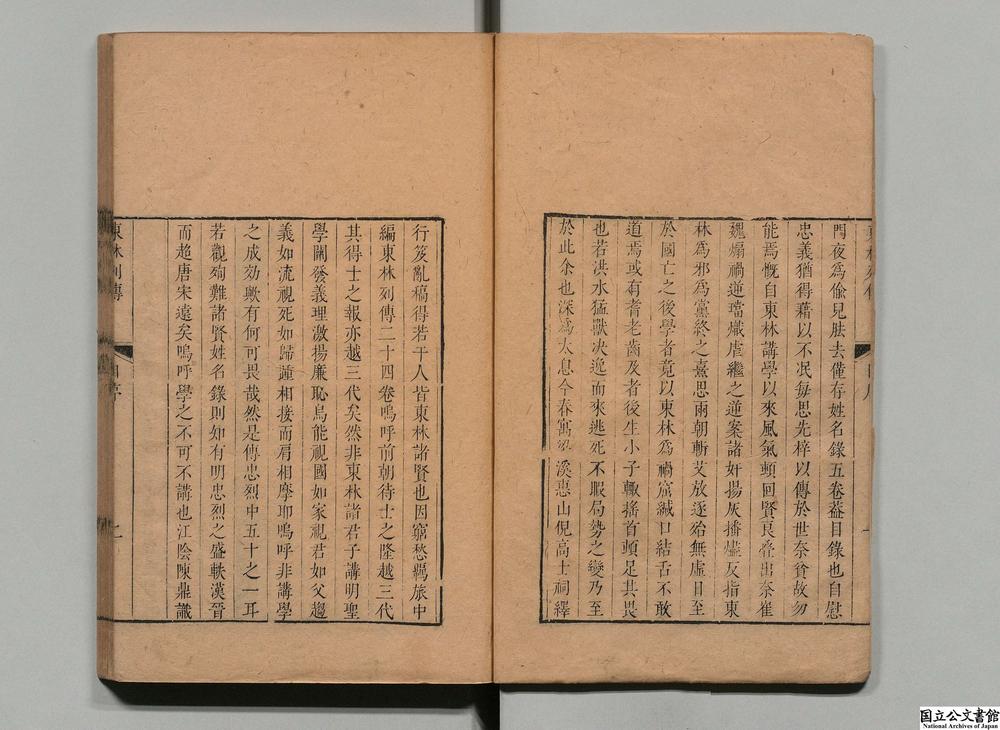 門夜爲偸兒胠去僅存姓名錄五卷葢目錄也自慰
忠義猶得藉以不冺每思先梓以傳於世奈貧故勿
能焉慨自東林講學以來風氣頓回賢良叠出奈崔
魏煽禍逆璫熾虐繼之逆案諸奸揚灰播燼反指東
林爲邪爲黨終之熹思兩朝斬艾放逐殆無虛日至
於國亡之後學者竟以東林爲禍窟緘口結舌不敢
道焉或有耆老齒及者後生小子輙搖首頓足其畏
也若洪水猛獸决逸而來逃死不暇局勢之變乃至
於此余也深爲太息今春寓 溪惠山倪高士祠繹
行笈亂稿得若干人皆東林諸賢也因窮愁羈旅中
編東林列傳二十四卷嗚呼前朝待士之隆越三代
其得士之報亦越三代矣然非東林諸君子講明聖
學闡發義理激揚廉恥烏能視國如家視君如父趨
義如流視死如歸踵相接而肩相摩耶嗚呼非講學
之成効歟有何可畏哉然是傳忠烈中五十之一耳
若觀殉難諸賢姓名錄則如有明忠烈之盛軼漢晉
而超唐宋遠矣嗚呼學之不可不講也江陰陳鼎識
東林列傳
国立公文書館
National Archives of Japan